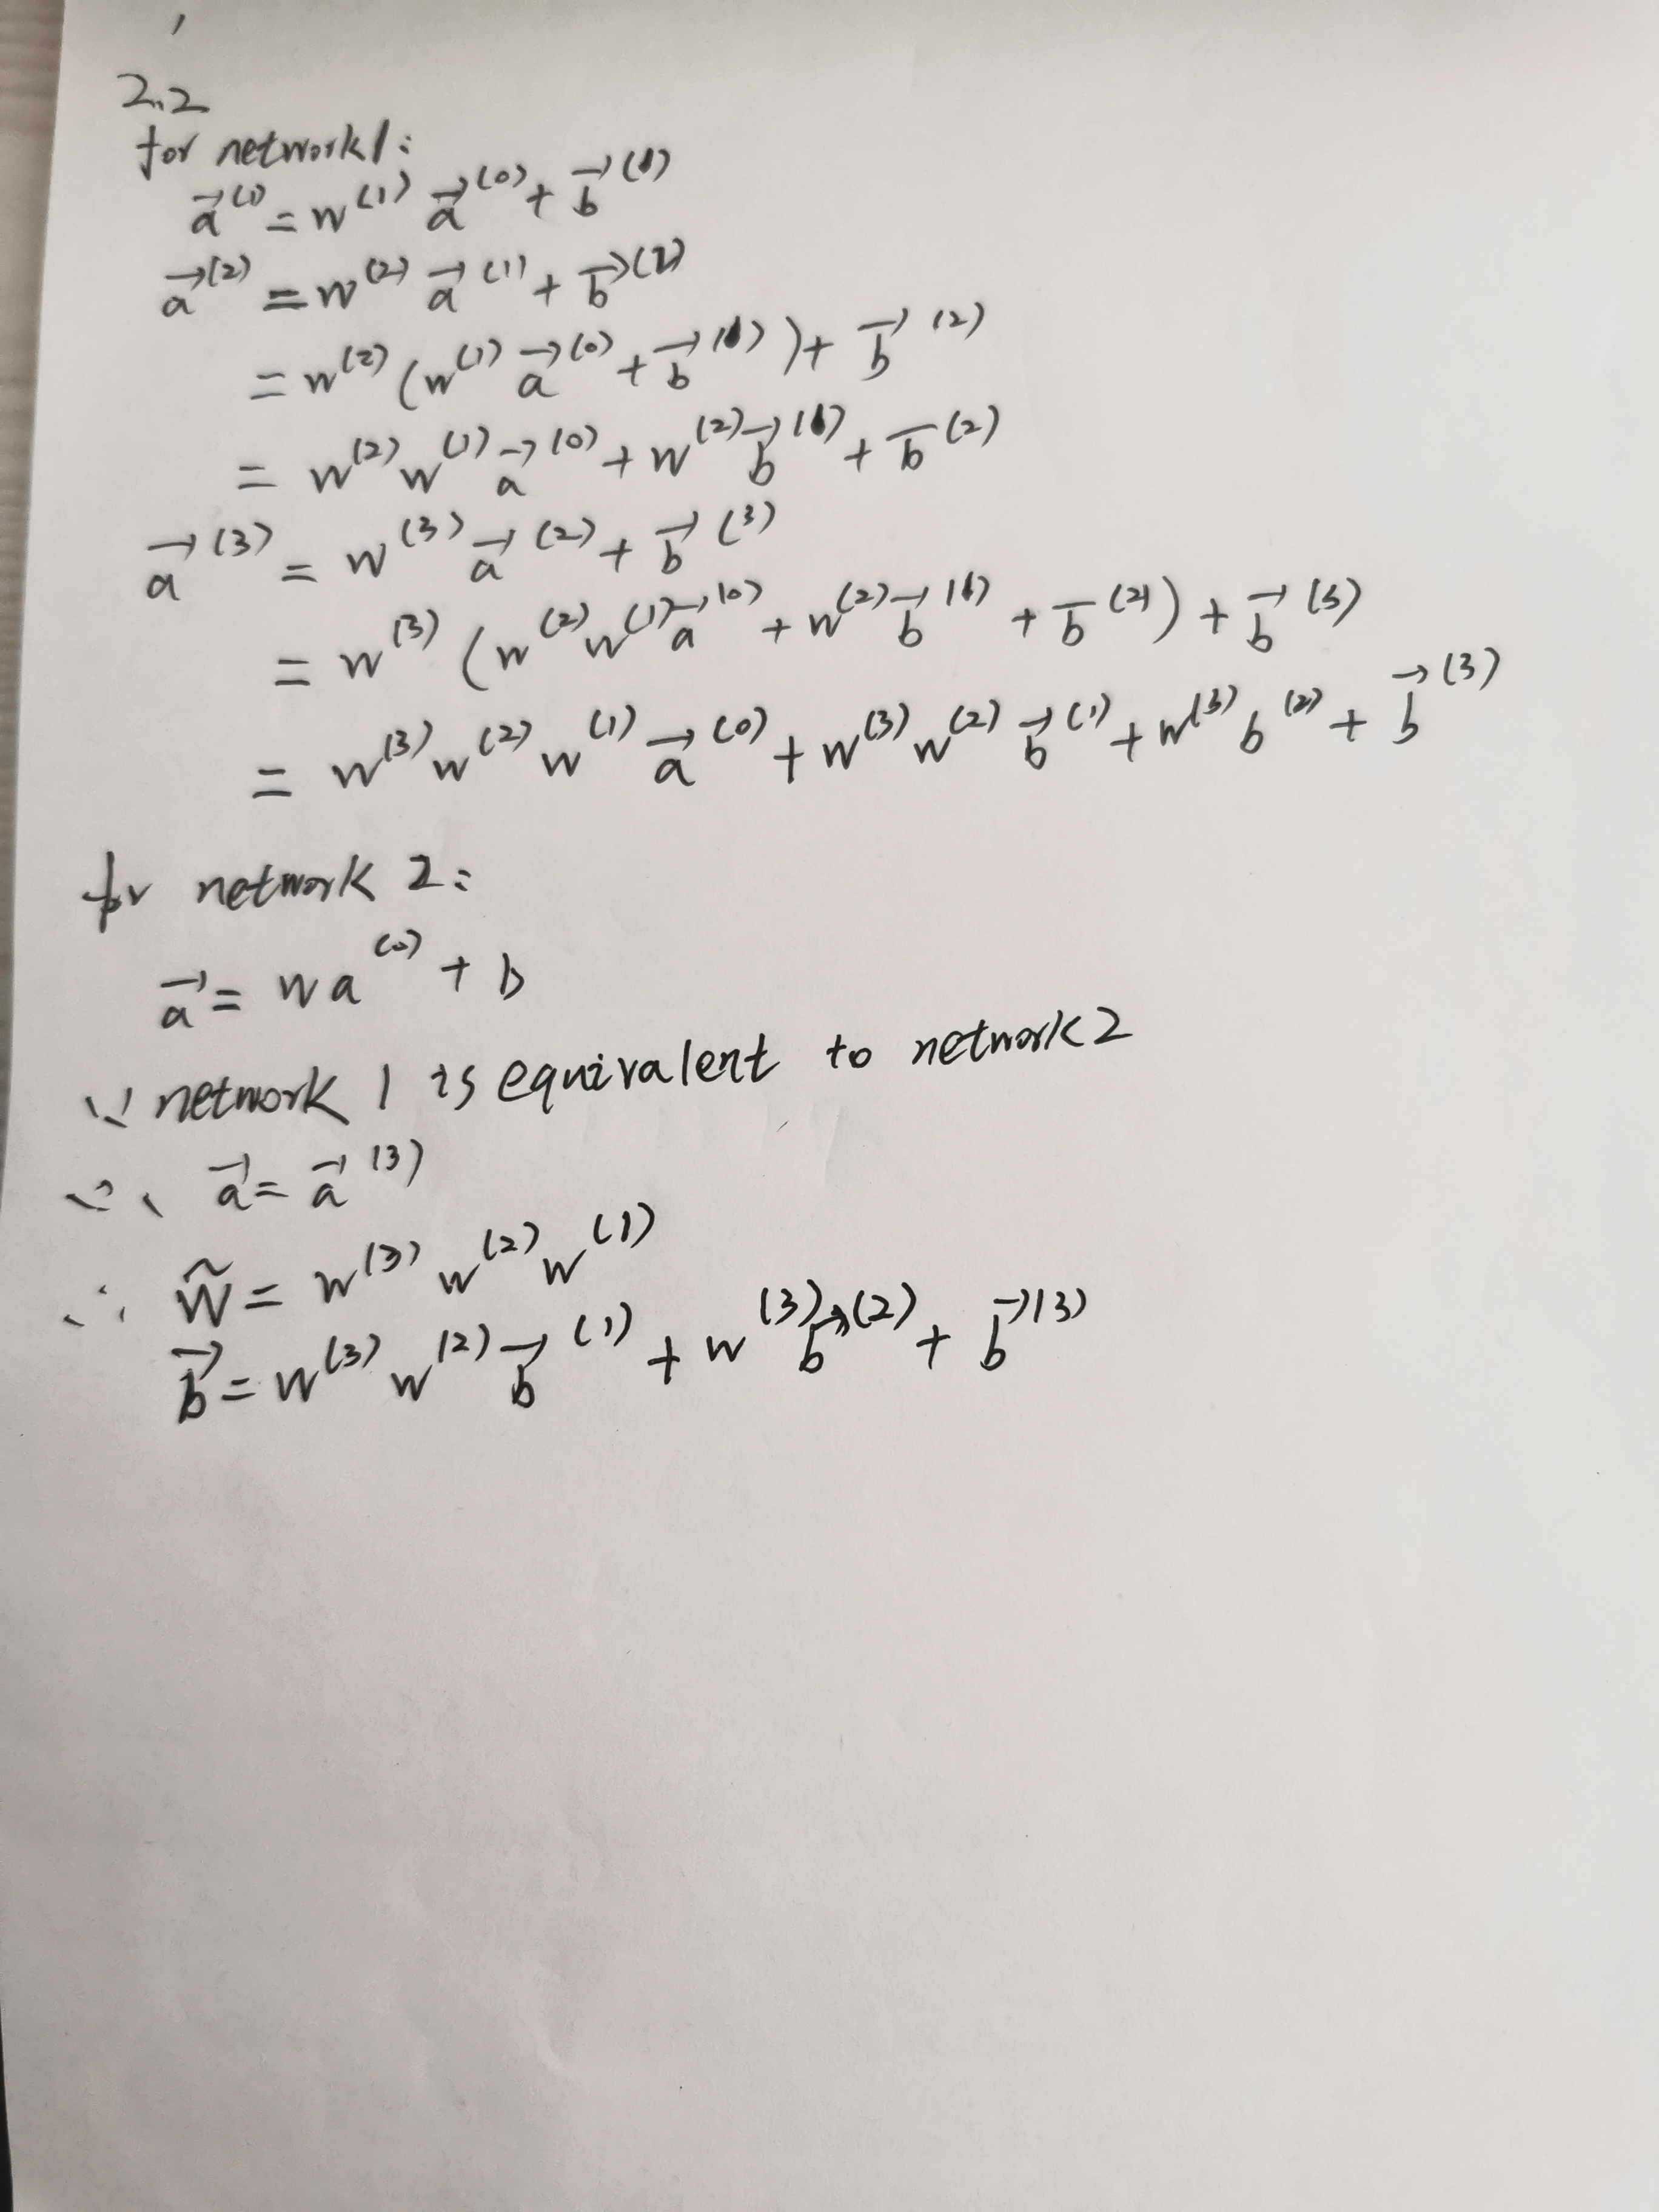 2.2
for network 1:
a⃗^(1) = w^(1) a⃗^(0) + b⃗^(1)
a⃗^(2) = w^(2) a⃗^(1) + b⃗^(2)
= w^(2) (w^(1) a⃗^(0) + b⃗^(1)) + b⃗^(2)
= w^(2) w^(1) a⃗^(0) + w^(2) b⃗^(1) + b̅^(2)
a⃗^(3) = w^(3) a⃗^(2) + b⃗^(3)
= w^(3) (w^(2) w^(1) a⃗^(0) + w^(2) b⃗^(1) + b̅^(2)) + b⃗^(3)
= w^(3) w^(2) w^(1) a⃗^(0) + w^(3) w^(2) b⃗^(1) + w^(3) b^(2) + b⃗^(3)
for network 2:
a⃗ = w a^(0) + b
∵ network 1 is equivalent to network 2
∴ a⃗ = a⃗^(3)
∴ W̃ = w^(3) w^(2) w^(1)
b⃗ = w^(3) w^(2) b⃗^(1) + w^(3) b⃗^(2) + b⃗^(3)